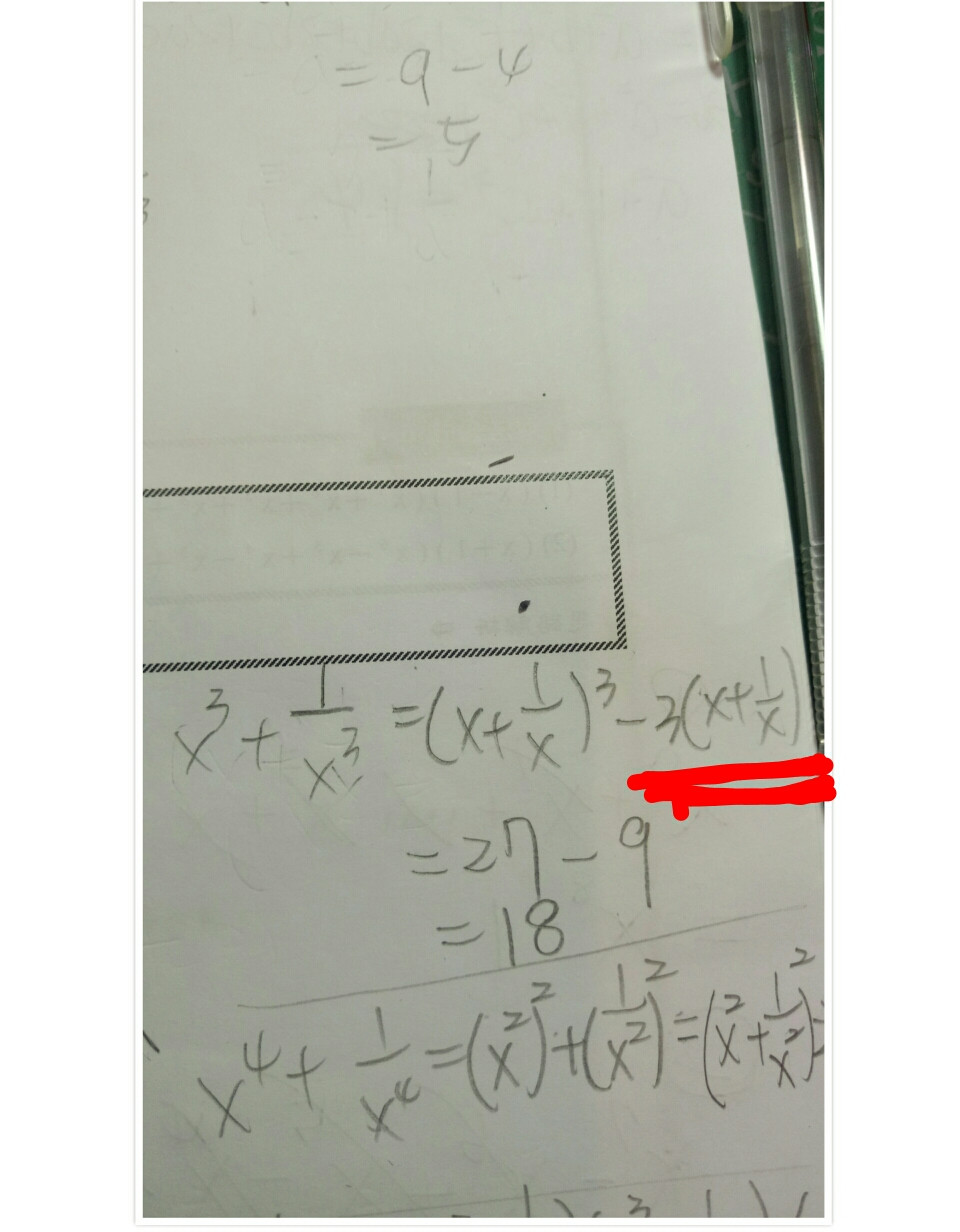 = 9 - 4
= 5
x³ + 1/x³ = (x + 1/x)³ - 3(x + 1/x)
= 27 - 9
= 18
x⁴ + 1/x⁴ = (x²)² + (1/x²)² = (x² + 1/x²)²